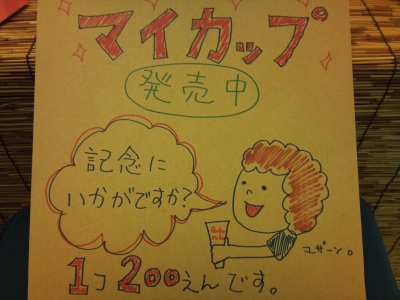 マイカップ
発売中
記念に
いかがですか?
ユザーン。
1コ200えんです。